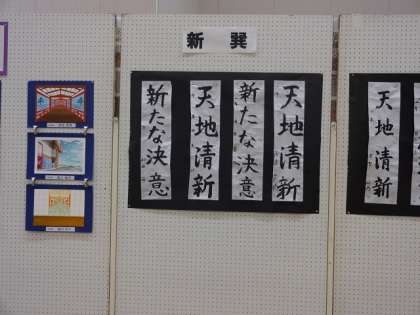 新巽
天地清新
新たな決意
天地清新
新たな決意
天地清新